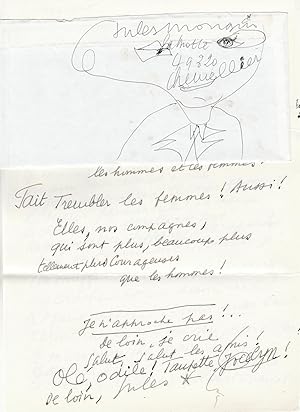 Jules Mougin
la Motte
49320
Chemellier
les hommes et les femmes!
Fait Trembler les femmes! Aussi!
Elles, nos compagnes,
qui sont plus, beaucoup plus
tellement plus Courageuses
que les hommes!
Je n'approche pas!..
De loin, je crie
Salut, salut les amis!
Olé, odile! Taupette Jocelyn!
De loin, Jules